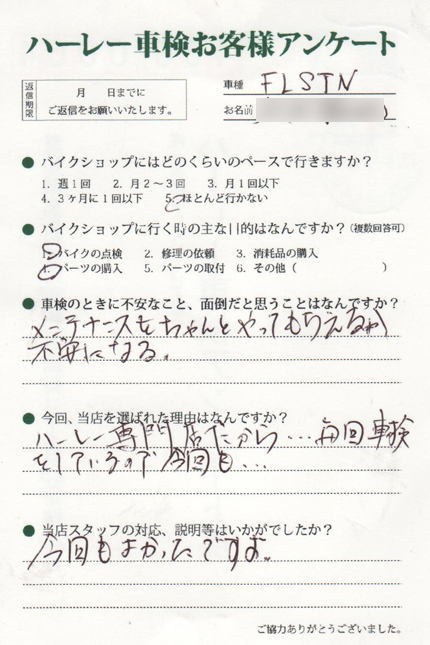 ハーレー車検お客様アンケート
返信期限
月　日までに
ご返信をお願いいたします。
車種 FLSTN
お名前
● バイクショップにはどのくらいのペースで行きますか？
1. 週1回　2. 月2～3回　3. 月1回以下
4. 3ヶ月に1回以下　5. ほとんど行かない
● バイクショップに行く時の主な目的はなんですか？（複数回答可）
1. バイクの点検　2. 修理の依頼　3. 消耗品の購入
4. パーツの購入　5. パーツの取付　6. その他（　　　）
● 車検のときに不安なこと、面倒だと思うことはなんですか？
メンテナンスをちゃんとやってもらえるか
不安になる。
● 今回、当店を選ばれた理由はなんですか？
ハーレー専門店だから…毎回車検
をしているので今回も…
● 当店スタッフの対応、説明等はいかがでしたか？
今回もよかったですよ。
ご協力ありがとうございました。